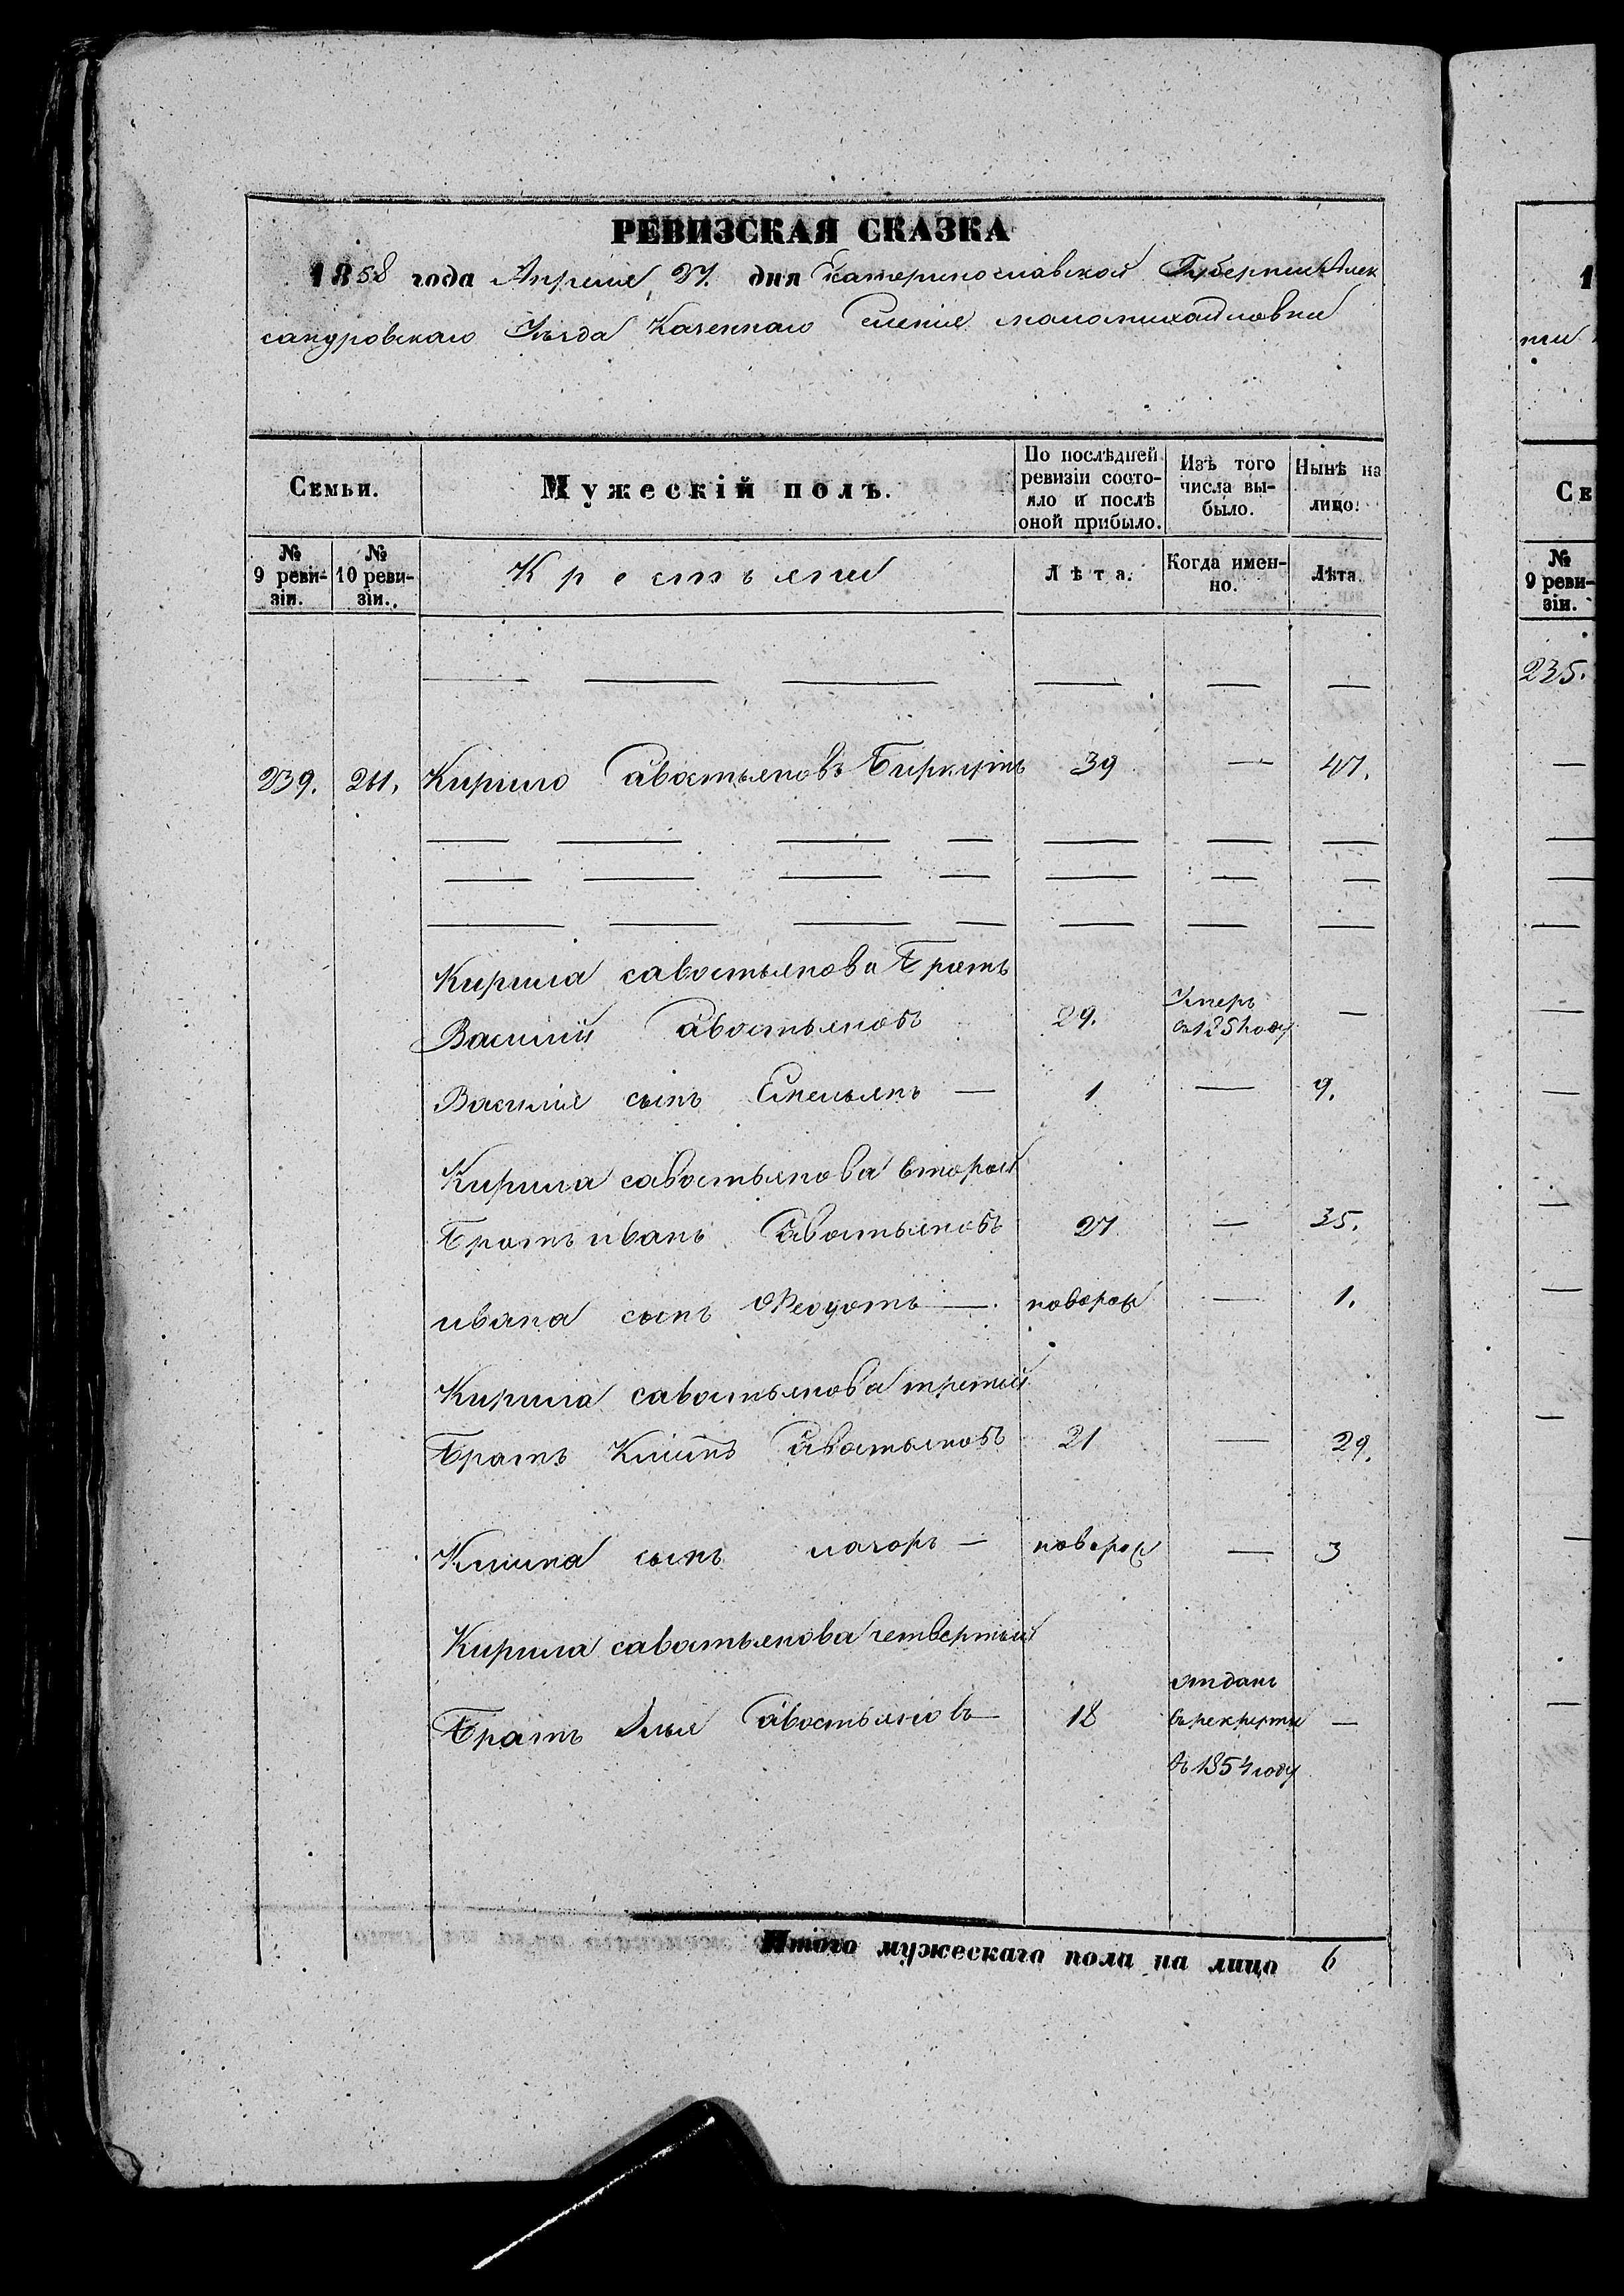 РЕВИЗСКАЯ СКАЗКА
1858 года Апреля 27. дня Екатеринославской Губернии Алек
сандровскаго Уѣзда Казеннаго Селенія маломихайловки
Семьи.
Мужескій полъ.
По послѣдней ревизіи состо-
яло и послѣ оной прибыло.
Изъ того числа вы-
было.
Нынѣ на лицо.
№ 9 реви-
зіи.
№ 10 реви-
зіи.
Крестьяне
Лѣта.
Когда имен-
но.
Лѣта.
239. 211. Кирило Савостьяновъ Биркутъ 39 — 47.
Кирила савостьянова Братъ
Василий Савостьяновъ 29. Умеръ
въ 1851 году —
Василия сынъ Емельянъ — 1 — 9.
Кирила савостьянова второй
Братъ иванъ Савостьяновъ 27 — 35.
ивана сынъ Феодотъ — новорож — 1.
Кирила савостьянова третий
Братъ Климъ Савостьяновъ 21 — 29.
Клима сынъ лазорь — новорож — 3
Кирила савостьянова четвертый
Братъ Илья Савостьяновъ 18 отданъ
въ рекруты —
въ 1854 году
Итого мужескаго пола на лицо 6
1
ти
Се
№
9 реви-
зіи.
235.